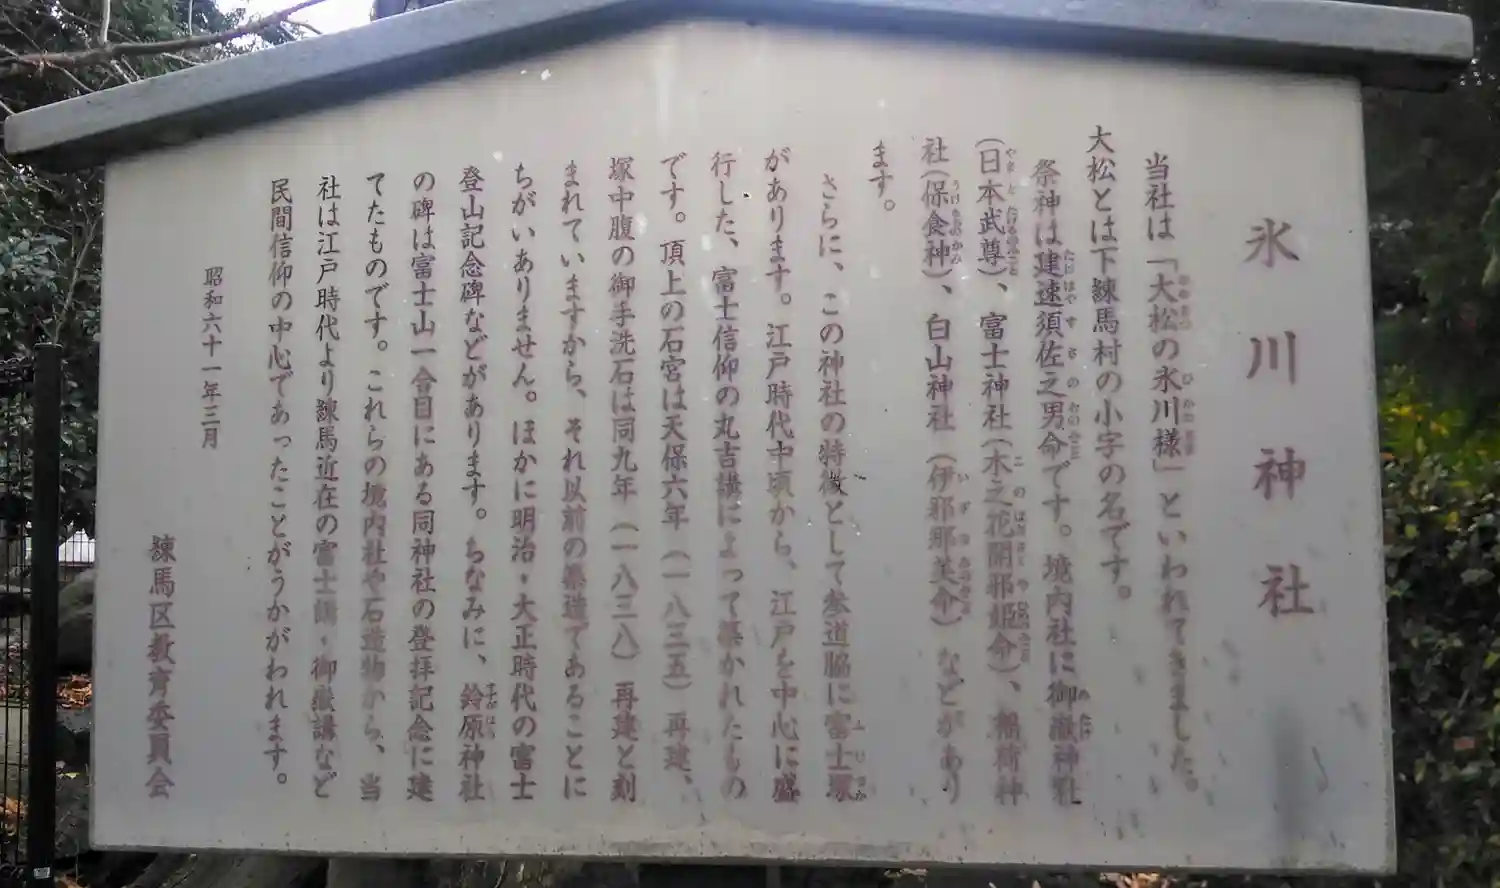 氷川神社
当社は「大松の氷川様」といわれてきました。
大松とは下練馬村の小字の名です。
祭神は建速須佐之男命です。境内社に御嶽神社
(日本武尊)、富士神社(木之花開邪姫命)、稲荷神
社(保食神)、白山神社(伊邪那美命)などがあり
ます。
さらに、この神社の特徴として参道脇に富士塚
があります。江戸時代中頃から、江戸を中心に盛
行した、富士信仰の丸吉講によって築かれたもの
です。頂上の石宮は天保六年(一八三五)再建、
塚中腹の御手洗石は同九年(一八三八)再建と刻
まれていますから、それ以前の築造であることに
ちがいありません。ほかに明治・大正時代の富士
登山記念碑などがあります。ちなみに、鈴原神社
の碑は富士山一合目にある同神社の登拝記念に建
てたものです。これらの境内社や石造物から、当
社は江戸時代より練馬近在の富士講・御嶽講など
民間信仰の中心であったことがうかがわれます。
昭和六十一年三月
練馬区教育委員会